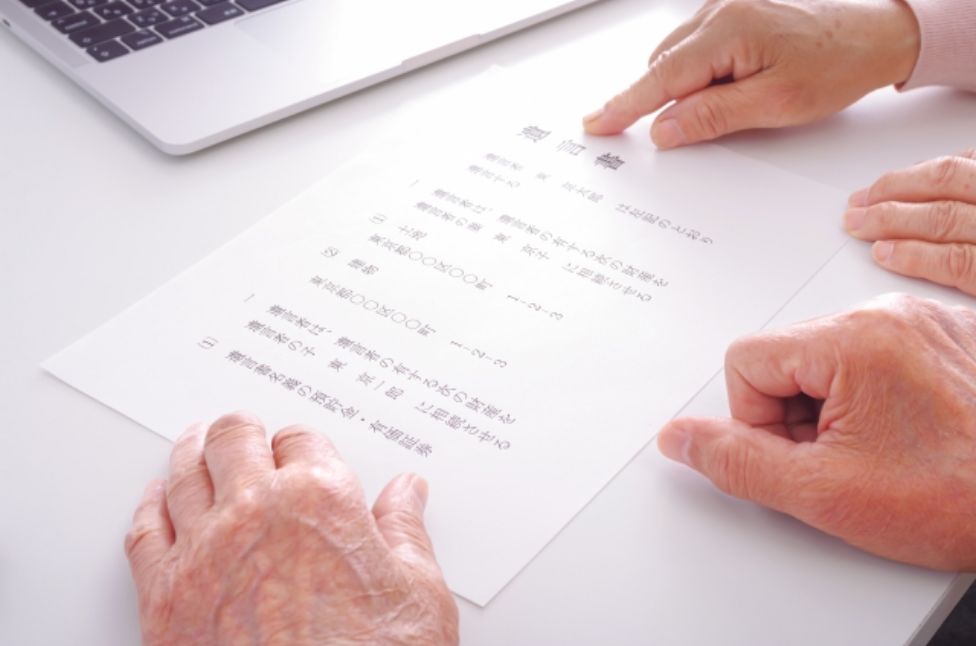 遺言書
遺言者 東 京太郎 は左記のとおり
遺言する
一 遺言者は、遺言者の有する次の財産を
遺言者の妻 東 京子 に相続させる
(1) 土地
東京都〇〇区〇〇町 1-2-3
(2) 建物
東京都〇〇区〇〇町 1-2-3
一 遺言者は、遺言者の有する次の財産を
遺言者の子 東 京一郎 に相続させる
(1) 遺言者名義の預貯金・有価証券